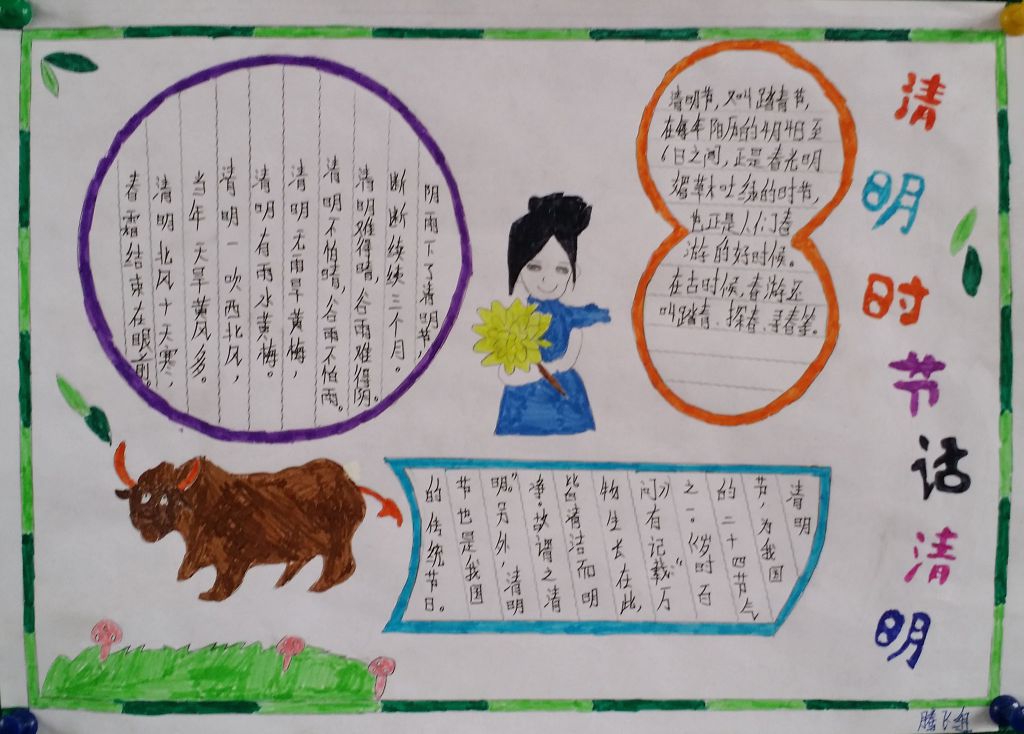 清明时节话清明
阴雨下了清明节，
断断续续三个月。
清明难得晴，谷雨难得阴。
清明不怕晴，谷雨不怕雨。
清明无雨旱黄梅，
清明有雨水黄梅。
清明一吹西北风，
当年天旱黄风多。
清明北风十天寒，
春霜结束在眼前。
清明节，又叫踏青节，
在每年阳历的4月4日至
6日之间，正是春光明
媚草木吐绿的时节，
也正是人们春
游的好时候。
在古时候，春游还
叫踏青、探春、寻春等。
清明
节，为我国
的二十四节气
之一。《岁时百
问》有记载：“万
物生长在此，
皆清洁而明
净。故谓之清
明。”另外，清明
节也是我国
的传统节日。
腾飞组